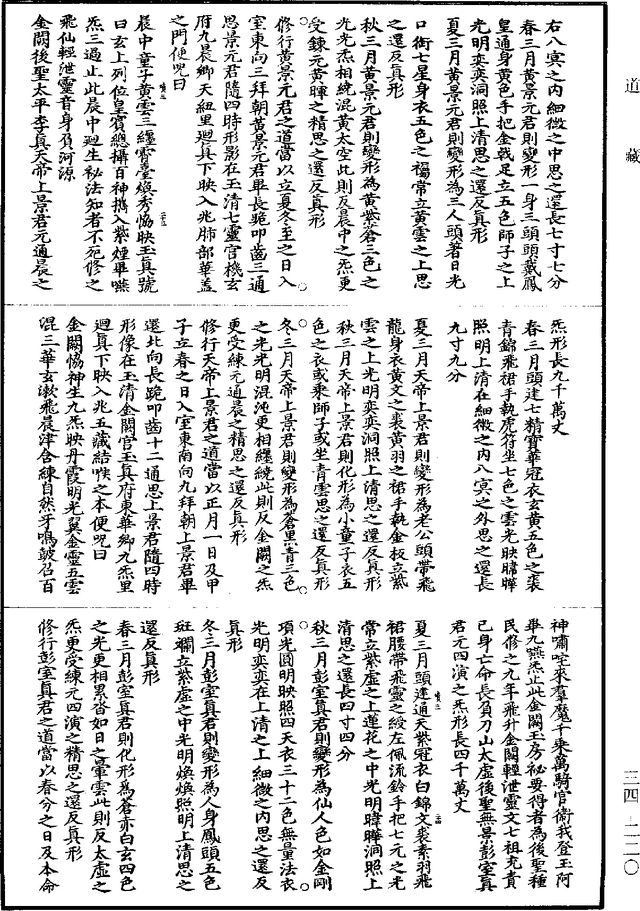 道藏
右八冥之內細微之中思之還長七寸七分
春三月黃景元君則變形一身三頭頭戴鳳
皇通身黃色手把金戟足立五色師子之上
光明奕奕洞照上清思之還反真形
夏三月黃景元君則變形為三人頭著日光
口銜七星身衣五色之褐常立黃雲之上思
之還反真形
秋三月黃景元君則變形為黃紫蒼三色之
光光炁相繞混黃太空此則反晨中之炁更
受鍊元黃暉之精思之還反真形
修行黃景元君之道當以立夏冬至之日入
室東向三拜朝黃景元君畢長跪叩齒三通
思景元君隨四時形影在玉清七靈宮機玄
府九晨鄉天紐里迴真下映入兆肺部華蓋
之門便呪曰
晨中童子黃雲三纏霄臺煥秀恊映玉真號
曰玄上列位皇賓總攝百神擕入紫煙畢嚥
炁三過止此晨中迴生祕法知者不死修之
飛仙輕泄靈音身負河源
金闕後聖太平李真天帝上景君元通晨之
炁形長九千萬丈
春三月頭建七精寶華冠衣玄黃五色之裘
青錦飛裙手執虎符坐七色之雲光映暐曄
照明上清在細微之內八冥之外思之還長
九寸九分
夏三月天帝上景君則變形為老公頭帶飛
龍身衣黃文之裘黃羽之裙手執金板立紫
雲之上光明奕奕洞照上清思之還反真形
秋三月天帝上景君則化形為小童子衣五
色之衣或乘師子或坐青雲思之還反真形
冬三月天帝上景君則變形為蒼黑青三色
之光光明混沌更相纏繞此則反金闕之炁
更受練元通晨之精思之還反真形
修行天帝上景君之道當以正月一日及甲
子立春之日入室東南向九拜朝上景君畢
還北向長跪叩齒十二通思上景君隨四時
形像在玉清金闕宮玉真府東華鄉九炁里
迴真下映入兆五藏結喉之本便呪曰
金闕恊神生九炁映丹霞明光翼金靈五雲
混三華玄漱飛晨津含練自然牙鳴皷召百
神嘯咤來羣魔千乘萬騎官衛我登玉阿
畢九嚥炁止此金闕玉房祕要得者為後聖種
民修之九年飛升金闕輕泄靈文七祖充責
已身亡命長負刀山太虛後聖無景彭室真
君元四演之炁形長四千萬丈
夏三月頭建通天紫冠衣白錦文裘素羽飛
裙腰帶飛靈之綬左佩流鈴手把七元之光
常立紫虛之上蓮花之中光明暐曄洞照上
清思之還長四寸四分
秋三月彭室真君則變形為仙人色如金剛
項光圓明映照四天衣三十二色無量法衣
光明奕奕在上清之上細微之內思之還反
真形
冬三月彭室真君則變形為人身鳳頭五色
斑斕立紫虛之中光明煥煥照明上清思之
還反真形
春三月彭室真君則化形為蒼赤白玄四色
之光更相累沓如日之暈雲此則反太虛之
炁更受練元四演之精思之還反真形
修行彭室真君之道當以春分之日及本命
三四－二二〇